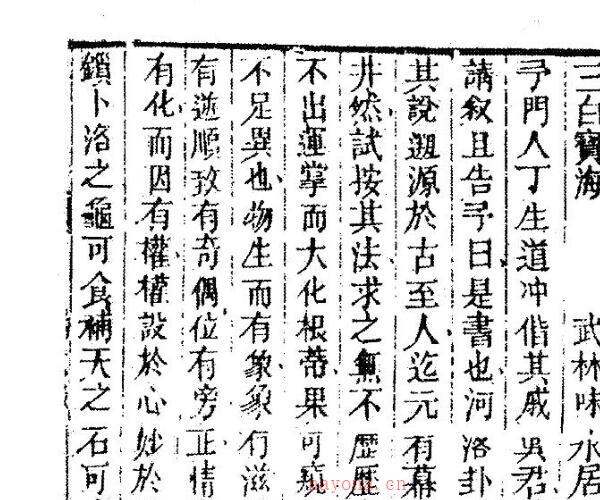 三白寶海　武林味水居
予門人丁生道冲偕其戚吳君
請叙且告予曰是書也河洛卦
其說遡源於古至人迄元有幕
井然試按其法求之無不歷歷
不出運掌而大化根蒂果可
不足異也物生而有象象有滋
有逆順致有奇偶位有旁正情
有化而因有權權設於心妙於
鎖卜洛之龜可食補天之石可
nayona.cn